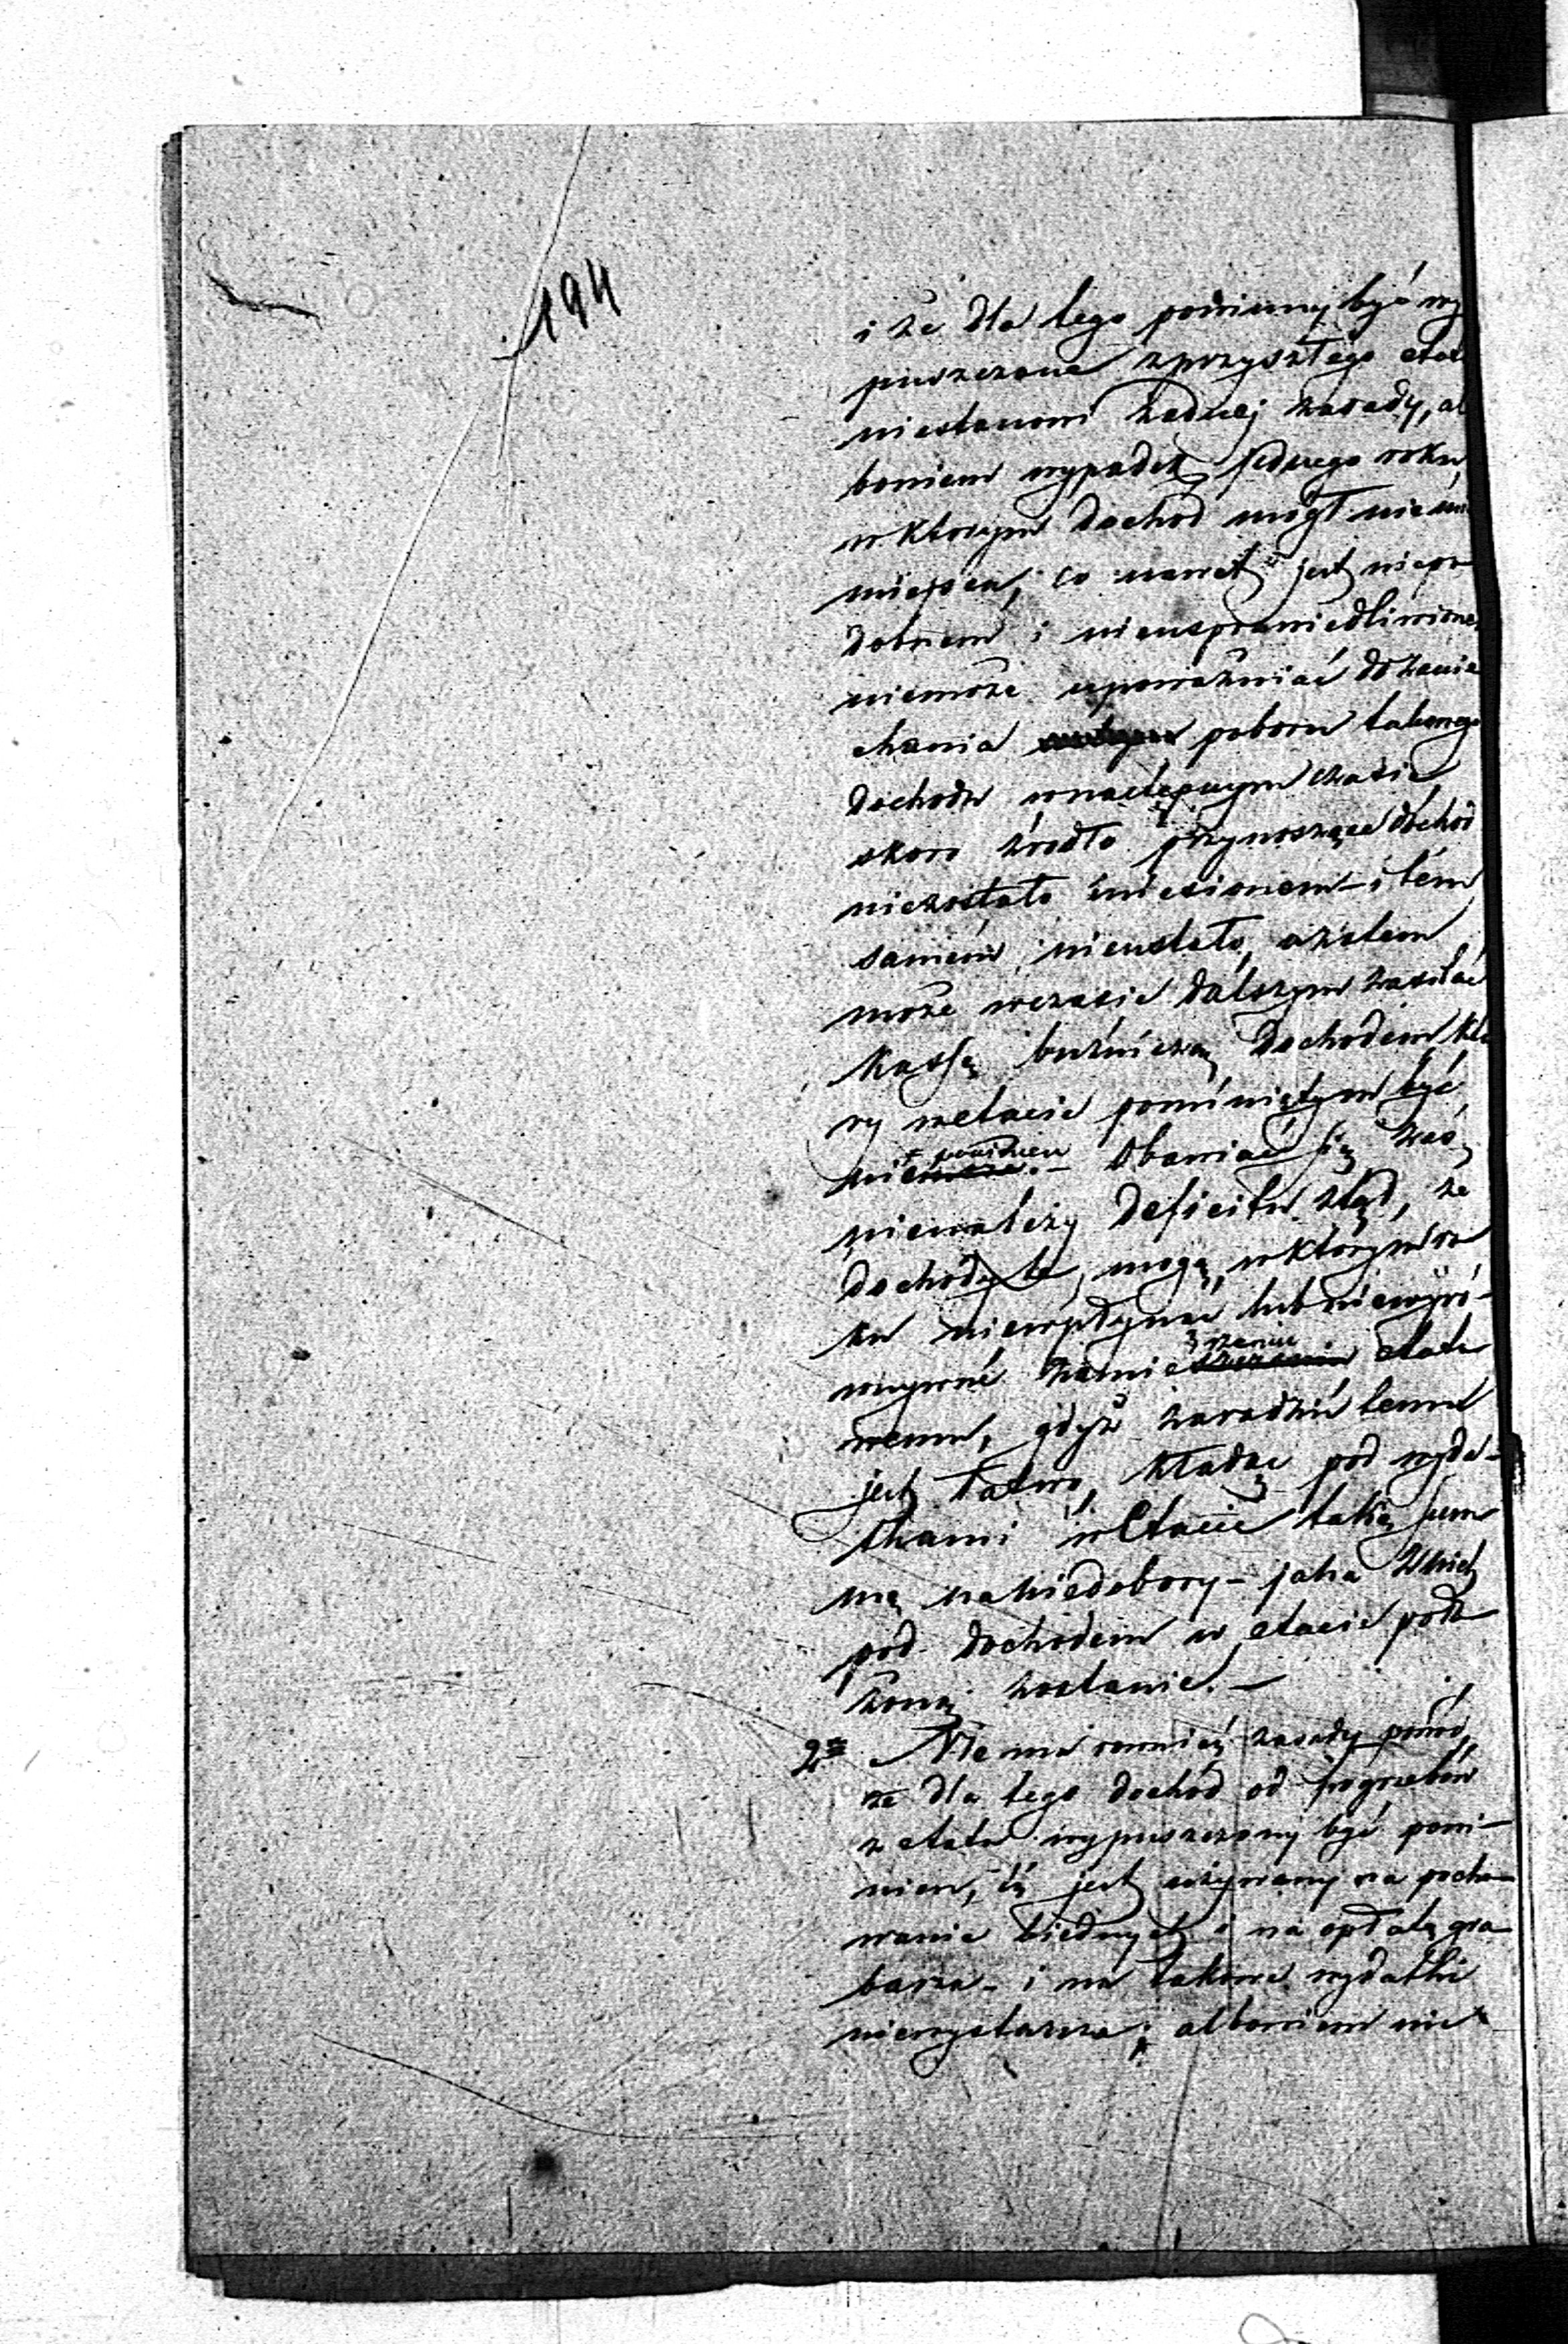 194
i że dla tego powinny być wy
puszczone zprzyszłego etat
niestanowi żadnej zasady, al
bowiem wypadek jednego roku,
w ktorym dochod mógł nie
miejsca, co nawet jest niepo
dobnem i nieusprawiedliwione
niemoże upoważniać do zanie
chania poboru takowego
dochodu wnastępnym czasie
skoro źrodło przynoszące dochód
niezostało zniesionem - i tém
saméem nieustało, azatem
może wczasie dalszym zasilać
kassę bużniczą dochodem, któ
ry wetacie pominiętym być
nie powinien. - Obawiać się zaś
nienależy deficitu ztąd, że
dochody te, mogą, w ktorym ro
ku niewpłynąć lub niewyró-
wnywać zamierzeniu etato
wemu, gdyż zaradzić temu
jest łatwo, kładąc pod wyda-
tkami w Etacie taką sum
mę na niedobory - jaka z nich
pod dochodem w etacie poło
żoną zostanie. -
2re Niema rownież zasady powód,
że dla tego dochód od pogrzebów
z etatu wypuszczony być powi-
nien, iż jest używany na pocho-
wanie biednych i na opłatę gra-
barza - i na takowe wydatki
niewystarcza; albowiem nie